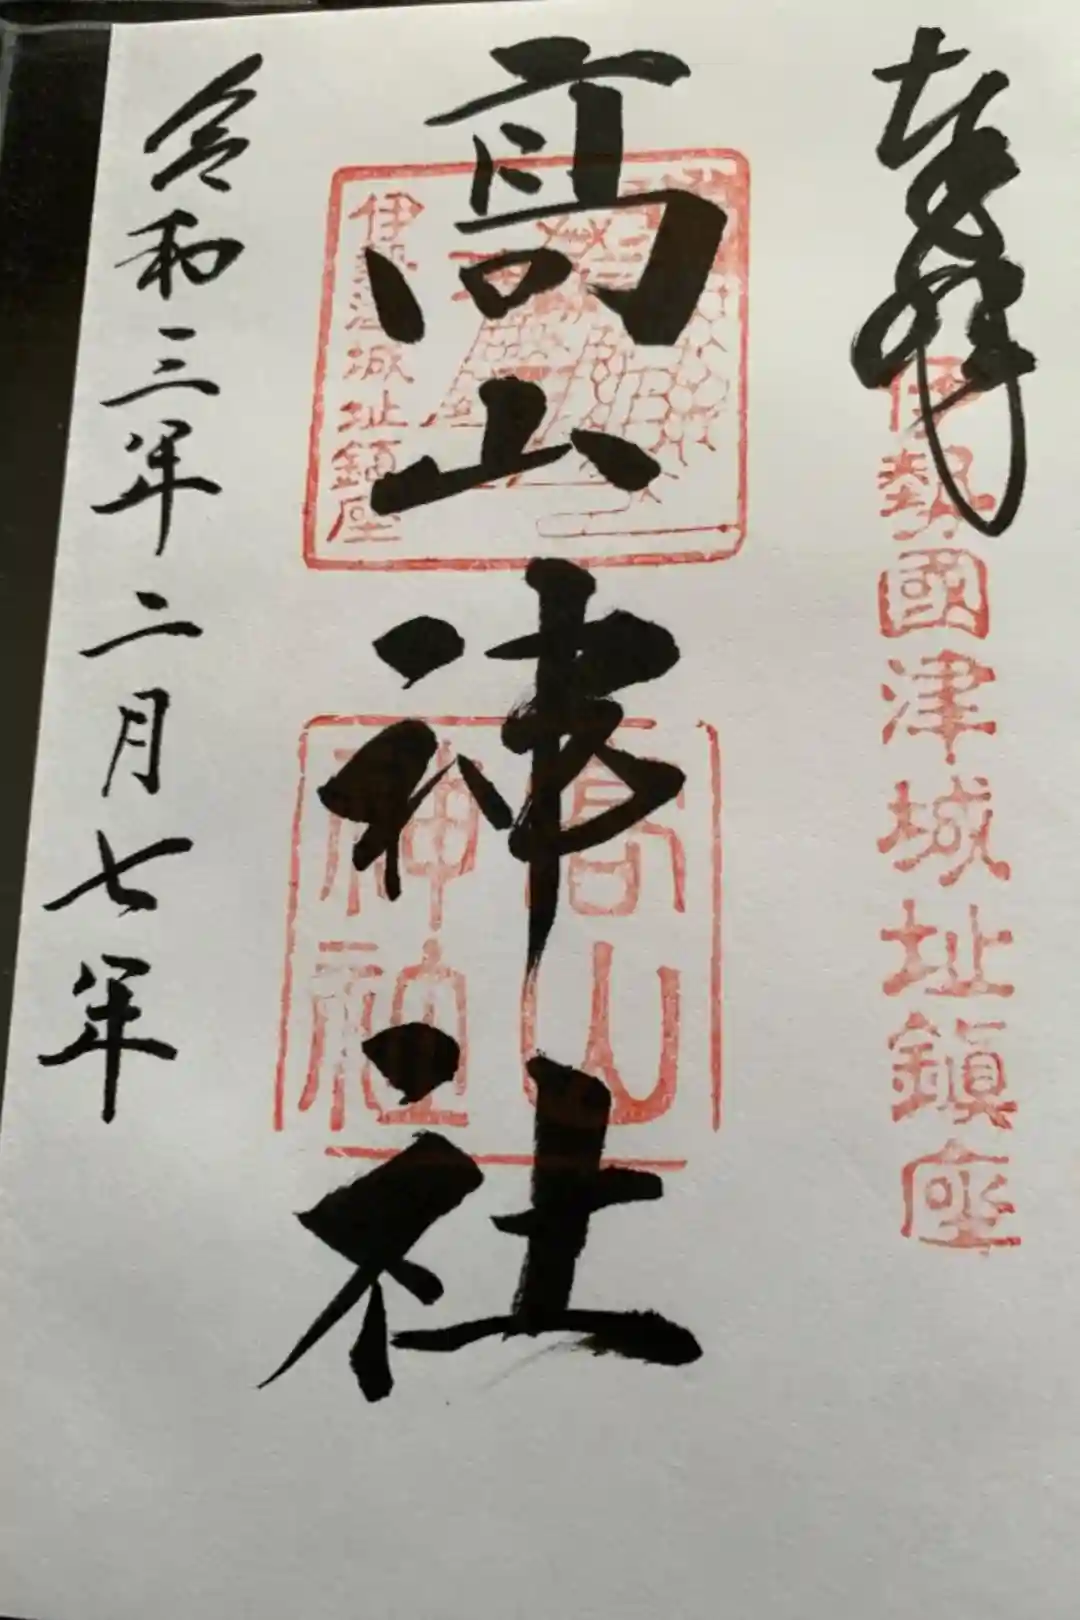 奉拝
伊勢國津城址鎮座
髙山神社
伊勢津城址鎮座
高山
神社
令和三年二月七年